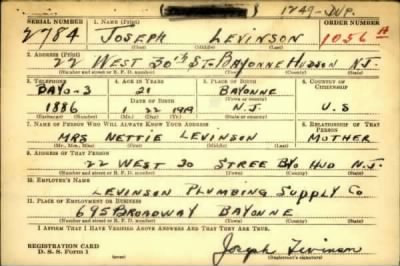 1249-DUP.
SERIAL NUMBER 1. NAME (Print) ORDER NUMBER
2784 JOSEPH LEVINSON 1056 A
2. ADDRESS (Print)
22 WEST 30TH ST. BAYONNE HUDSON N.J.
(Number and street or R. F. D. number) (Town) (County) (State)
3. TELEPHONE 4. AGE IN YEARS 5. PLACE OF BIRTH 6. COUNTRY OF CITIZENSHIP
BAYO-3 21 BAYONNE
DATE OF BIRTH (Town or county)
1886 1 22 1919 N.J. U.S
(Mo.) (Day) (Yr.) (State or country)
7. NAME OF PERSON WHO WILL ALWAYS KNOW YOUR ADDRESS 8. RELATIONSHIP OF THAT PERSON
MRS NETTIE LEVINSON MOTHER
(Mr., Mrs., Miss) (First) (Middle) (Last)
9. ADDRESS OF THAT PERSON
22 WEST 30 STREE BYO HUD N.J.
(Number and street or R. F. D. number) (Town) (County) (State)
10. EMPLOYER'S NAME
LEVINSON PLUMBING SUPPLY CO
11. PLACE OF EMPLOYMENT OR BUSINESS
695 BROADWAY BAYONNE
(Number and street or R. F. D. number) (Town) (County) (State)
I AFFIRM THAT I HAVE VERIFIED ABOVE ANSWERS AND THAT THEY ARE TRUE.
REGISTRATION CARD
D. S. S. Form 1 Joseph Levinson
(Registrant's signature)